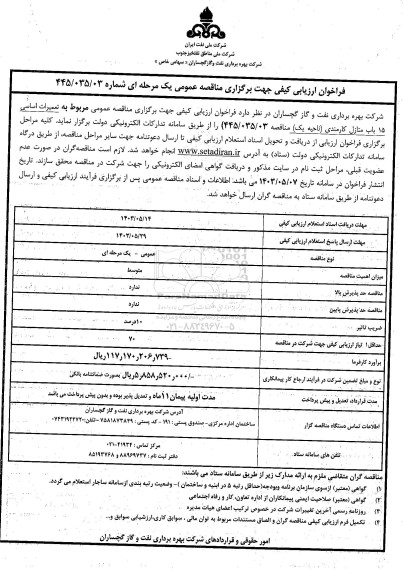 شرکت ملی نفت ایران
شرکت ملی مناطق نفتخیز جنوب
شرکت بهره برداری نفت و گاز گچساران « سهامی خاص »
فراخوان ارزیابی کیفی جهت برگزاری مناقصه عمومی یک مرحله ای شماره ۴۴۵/۰۳۵/۰۳
شرکت بهره برداری نفت و گاز گچساران در نظر دارد فراخوان ارزیابی کیفی جهت برگزاری مناقصه عمومی مربوط به تعمیرات اساسی
۱۵ باب منازل کارمندی (ناحیه یک) مناقصه (۴۴۵/۰۳۵/۰۳) را از طریق سامانه تدارکات الکترونیکی دولت برگزار نماید. کلیه مراحل
برگزاری فراخوان ارزیابی از دریافت و تحویل اسناد استعلام ارزیابی کیفی تا ارسال دعوتنامه جهت سایر مراحل مناقصه، از طریق درگاه
سامانه تدارکات الکترونیکی دولت (ستاد) به آدرس www.setadiran.ir انجام خواهد شد. لازم است مناقصه‌گران در صورت عدم
عضویت قبلی، مراحل ثبت نام در سایت مذکور و دریافت گواهی امضای الکترونیکی را جهت شرکت در مناقصه محقق سازند. تاریخ
انتشار فراخوان در سامانه تاریخ ۱۴۰۳/۰۵/۰۷ می باشد. اطلاعات و اسناد مناقصه عمومی پس از برگزاری فرآیند ارزیابی کیفی و ارسال
دعوتنامه از طریق سامانه ستاد به مناقصه گران ارسال خواهد شد.
مهلت دریافت اسناد استعلام ارزیابی کیفی ۱۴۰۳/۰۵/۱۴
مهلت ارسال پاسخ استعلام ارزیابی کیفی ۱۴۰۳/۰۵/۲۹
نوع مناقصه عمومی - یک مرحله ای
میزان اهمیت مناقصه متوسط
مناقصه حد پذیرش بالا ندارد
مناقصه حد پذیرش پایین ندارد
ضریب تاثیر ۱۰درصد
حداقل امتیاز ارزیابی کیفی جهت شرکت در مناقصه ۷۰
برآورد کارفرما ۱۱۷٫۱۷۰٫۲۰۶٫۷۳۹ ریال
نوع و مبلغ تضمین شرکت در فرآیند ارجاع کار پیمانکاری ۵٫۸۵۸٫۵۲۰٫۰۰۰ ریال بصورت ضمانتنامه بانکی
مدت قرارداد، تعدیل و پیش پرداخت مدت اولیه پیمان ۱۱ ماه و تعدیل پذیر بوده و بدون پیش پرداخت می باشد
اطلاعات تماس دستگاه مناقصه گزار آدرس شرکت بهره برداری نفت و گاز گچساران
ساختمان اداره مرکزی- صندوق پستی: ۱۹۱ - کد پستی:
تلفن های سامانه ستاد مرکز تماس: ۴۱۹۳۴-۰۲۱
دفتر ثبت نام: ۸۸۹۶۹۷۳۷ و ۸۵۱۹۳۷۶۸
مناقصه گران متقاضی ملزم به ارائه مدارک زیر از طریق سامانه ستاد می باشند:
۱) گواهی (معتبر) ازسوی سازمان برنامه وبودجه(حداقل رتبه ۵ در ابنیه و ساختمان )– وضعیت رتبه بندی ازسامانه ساجار استعلام می گردد.
۲) گواهی (معتبر) صلاحیت ایمنی پیمانکاران از اداره تعاون، کار و رفاه اجتماعی
۳) روزنامه رسمی آخرین تغییرات شرکت در خصوص ترکیب اعضای هیات مدیره
۴) تکمیل فرم ارزیابی کیفی مناقصه گران و الصاق مستندات مربوط به توان مالی ، سوابق کاری،ارزشیابی سوابق و...
امور حقوقی و قراردادهای شرکت بهره برداری نفت و گاز گچساران